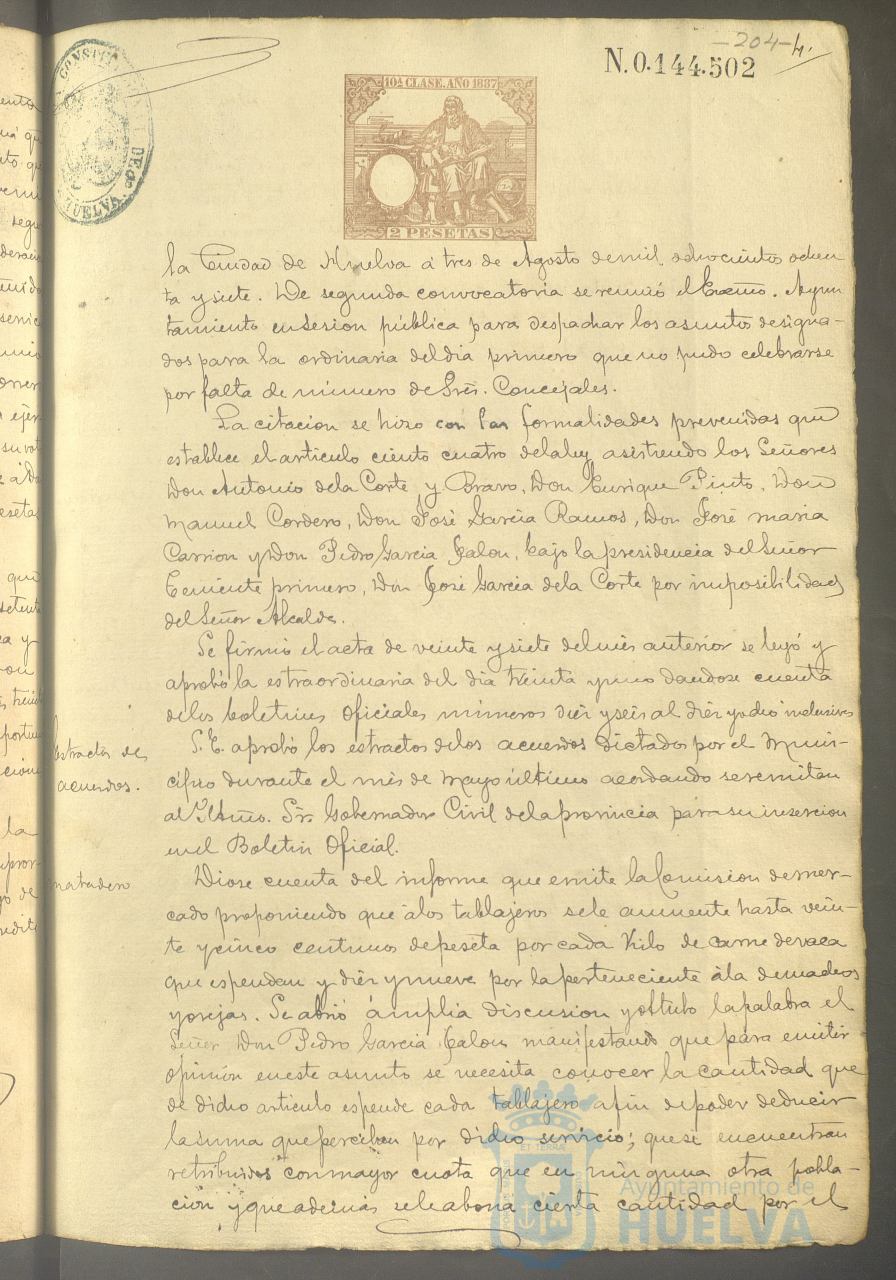 -204-4.
N.0.144.502
CONSTI
DE
HUELVA.
10ª CLASE. AÑO 1887
2 PESETAS
la Ciudad de Huelva á tres de Agosto de mil ochocientos ochen-
ta y siete. De segunda convocatoria se reunió el Excmo. Ayun-
tamiento en sesion pública para despachar los asuntos designa-
dos para la ordinaria del dia primero que no pudo celebrarse
por falta de número de Sres. Concejales.
La citacion se hizo con las formalidades prevenidas que
establece el articulo ciento cuatro de la ley asistiendo los Señores
Don Antonio de la Corte y Bravo, Don Enrique Pinto, Don
Manuel Cordero, Don José Garcia Ramos, Don José maria
Carrion y Don Pedro Garcia Jalon, bajo la presidencia del Señor
Teniente primero, Don José Garcia de la Corte por imposibilidad
del Señor Alcalde.
Se firmó el acta de veinte y siete del mes anterior se leyó y
aprobó la estraordinaria del dia treinta y uno dandose cuenta
de los boletines oficiales números diez y seis al diez y ocho inclusives
Estractos de
acuerdos.
S. E. aprobó los estractos de los acuerdos dictados por el Muni-
cipio durante el mes de Mayo último acordando se remitan
al Iltmo. Sr. Gobernador Civil de la provincia para su insercion
en el Boletin Oficial.
matadero
Diose cuenta del informe que emite la Comision de mer-
cado proponiendo que á los tablajeros se le aumente hasta vein-
te y cinco centimos de peseta por cada kilo de carne de vaca
que espendan y diez y nueve por la perteneciente á la de machos
y orejas. Se abrió ámplia discusion y obtubo la palabra el
Señor Don Pedro Garcia Jalon manifestando que para emitir
opinión en este asunto se necesita conocer la cantidad que
de dicho articulo espende cada tablajero a fin de poder deducir
la suma que perciben por dicho servicio; que se encuentran
retribuidos con mayor cuota que en ninguna otra pobla-
cion y que además se le abona cierta cantidad por el
Ayuntamiento de
HUELVA